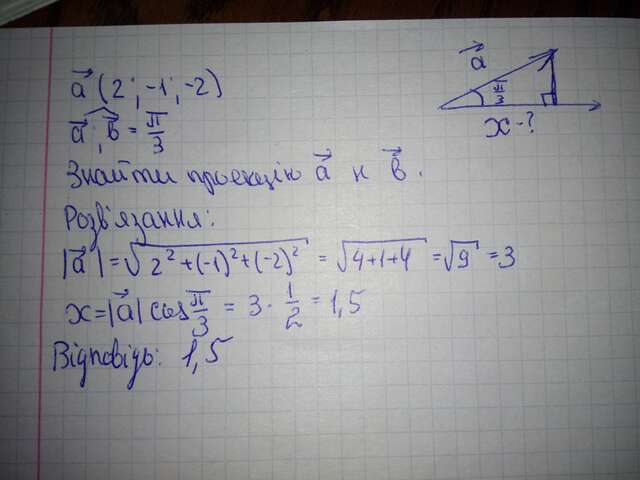 a⃗ (2; -1; -2)
a⃗; b⃗ = π/3
Знайти проекцію a⃗ н b⃗.
Розв'язання:
|a⃗| = √2² + (-1)² + (-2)² = √4+1+4 = √9 = 3
x = |a⃗| cos π/3 = 3 · 1/2 = 1,5
Відповідь: 1,5
a⃗
π/3
x - ?